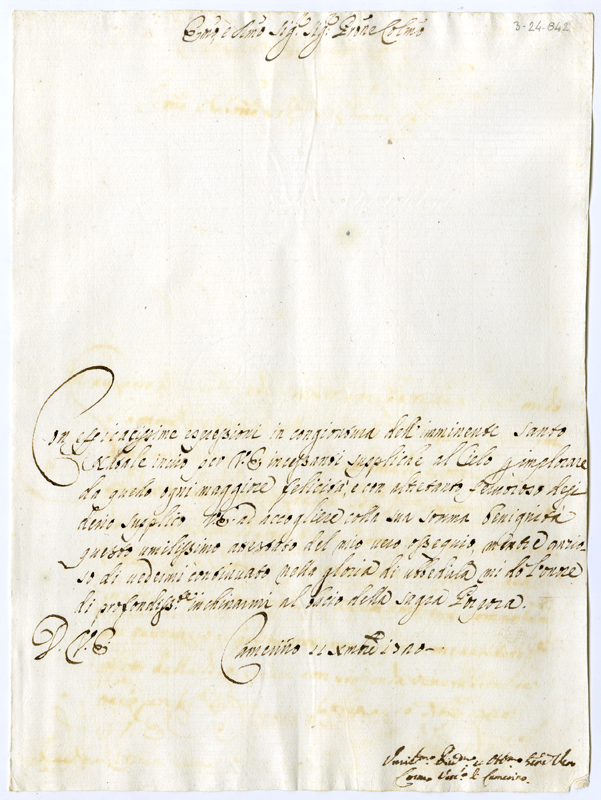 3-24-842
Em̃o, e Rm̃o Sig.r Sig.r Prõne Colm̃o
Con efficacissime espressioni in congiontura dell' imminente Santo
Natale invio per V.E. incessanti suppliche al Cielo p implorare
da quello ogni maggiore felicità, e con altretanto fervoroso desi
derio supplico V.E. ad accogliere colla sua somma benignità
questo umilissimo attestato del mio vero ossequio, mentre ansio-
so di vedermi continuato nella gloria di ubbidirla mi dò l'onore
di profondiss.te inchinarmi al bacio della Sagra Porpora.
D. V. E.
Camerino xmbre
Umil.mo Dev.mo et Obb.mo Ser.e Vero
Cosmo Vesc.o di Camerino.